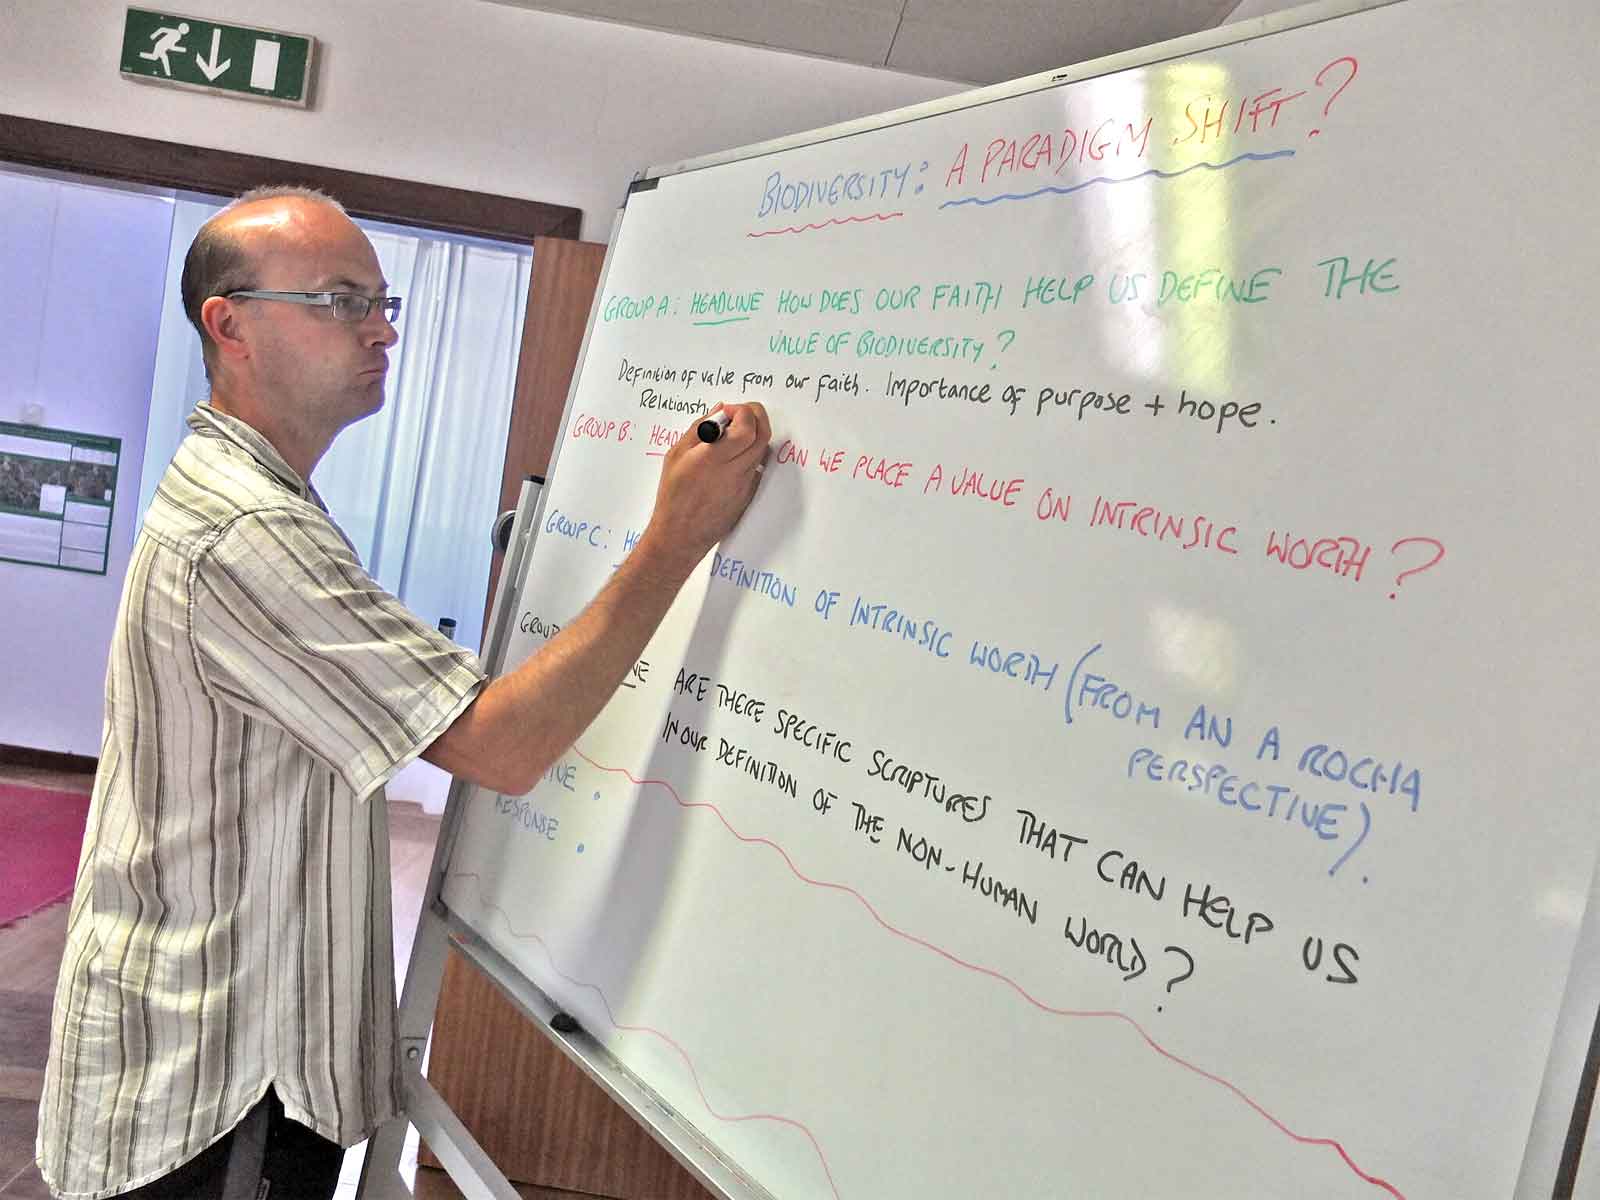 BIODIVERSITY: A PARADIGM SHIFT?
GROUP A: HEADLINE HOW DOES OUR FAITH HELP US DEFINE THE
VALUE OF BIODIVERSITY?
Definition of value from our faith. Importance of purpose + hope.
GROUP B: CAN WE PLACE A VALUE ON INTRINSIC WORTH?
GROUP C: DEFINITION OF INTRINSIC WORTH (FROM AN A ROCHA
PERSPECTIVE).
GROUP
ARE THERE SPECIFIC SCRIPTURES THAT CAN HELP US
IN OUR DEFINITION OF THE NON-HUMAN WORLD?
RESPONSE